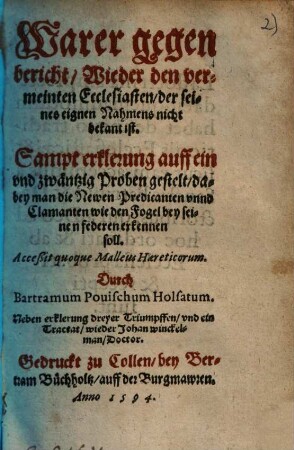 2)
Warer gegen
bericht/ Wieder den ver-
meinten Ecclesiasten/der sei-
nes eignen Nahmens nicht
bekant ist.
Sampt erklerung auff ein
vnd zwäntzig Proben gestelt/ da-
bey man die Newen Predicanten vnnd
Clamanten wie den Fogel bey sei-
nen federen erkennen
soll.
Accessit quoque Malleus Hæreticorum.
Durch
Bartramum Pouischum Holsatum.
Neben erklerung dreyer Triumpffen/ vnd ein
Tractat/ wieder Johan winckel-
man/Doctor.
Gedruckt zu Collen/ bey Ber-
tram Büchholtz/ auff der Burgmawren.
Anno 1594.